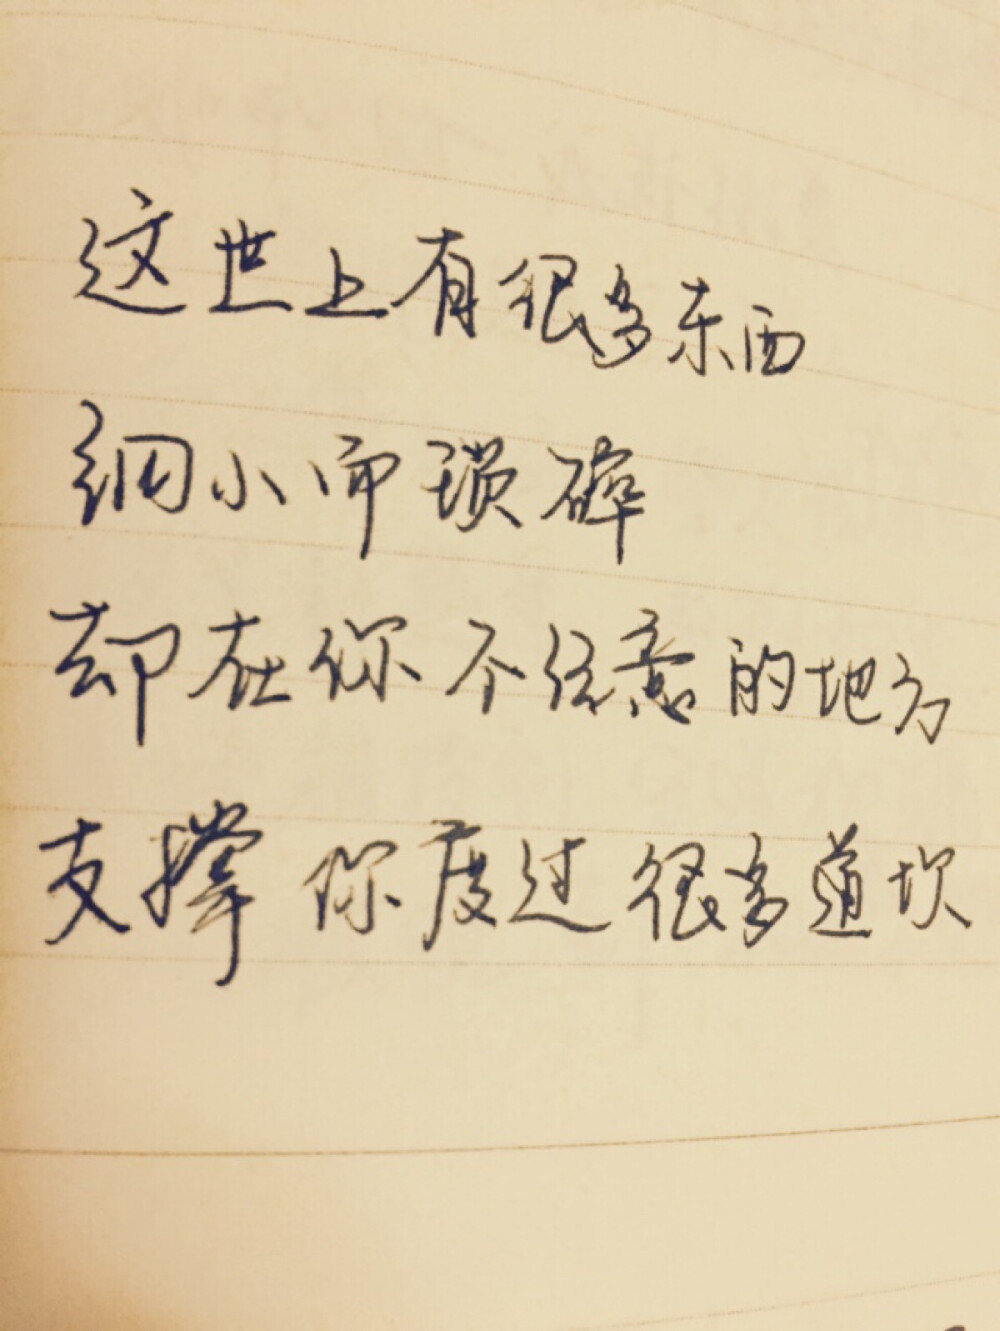 这世上有很多东西
细小而琐碎
却在你不经意的地方
支撑你度过很多道坎